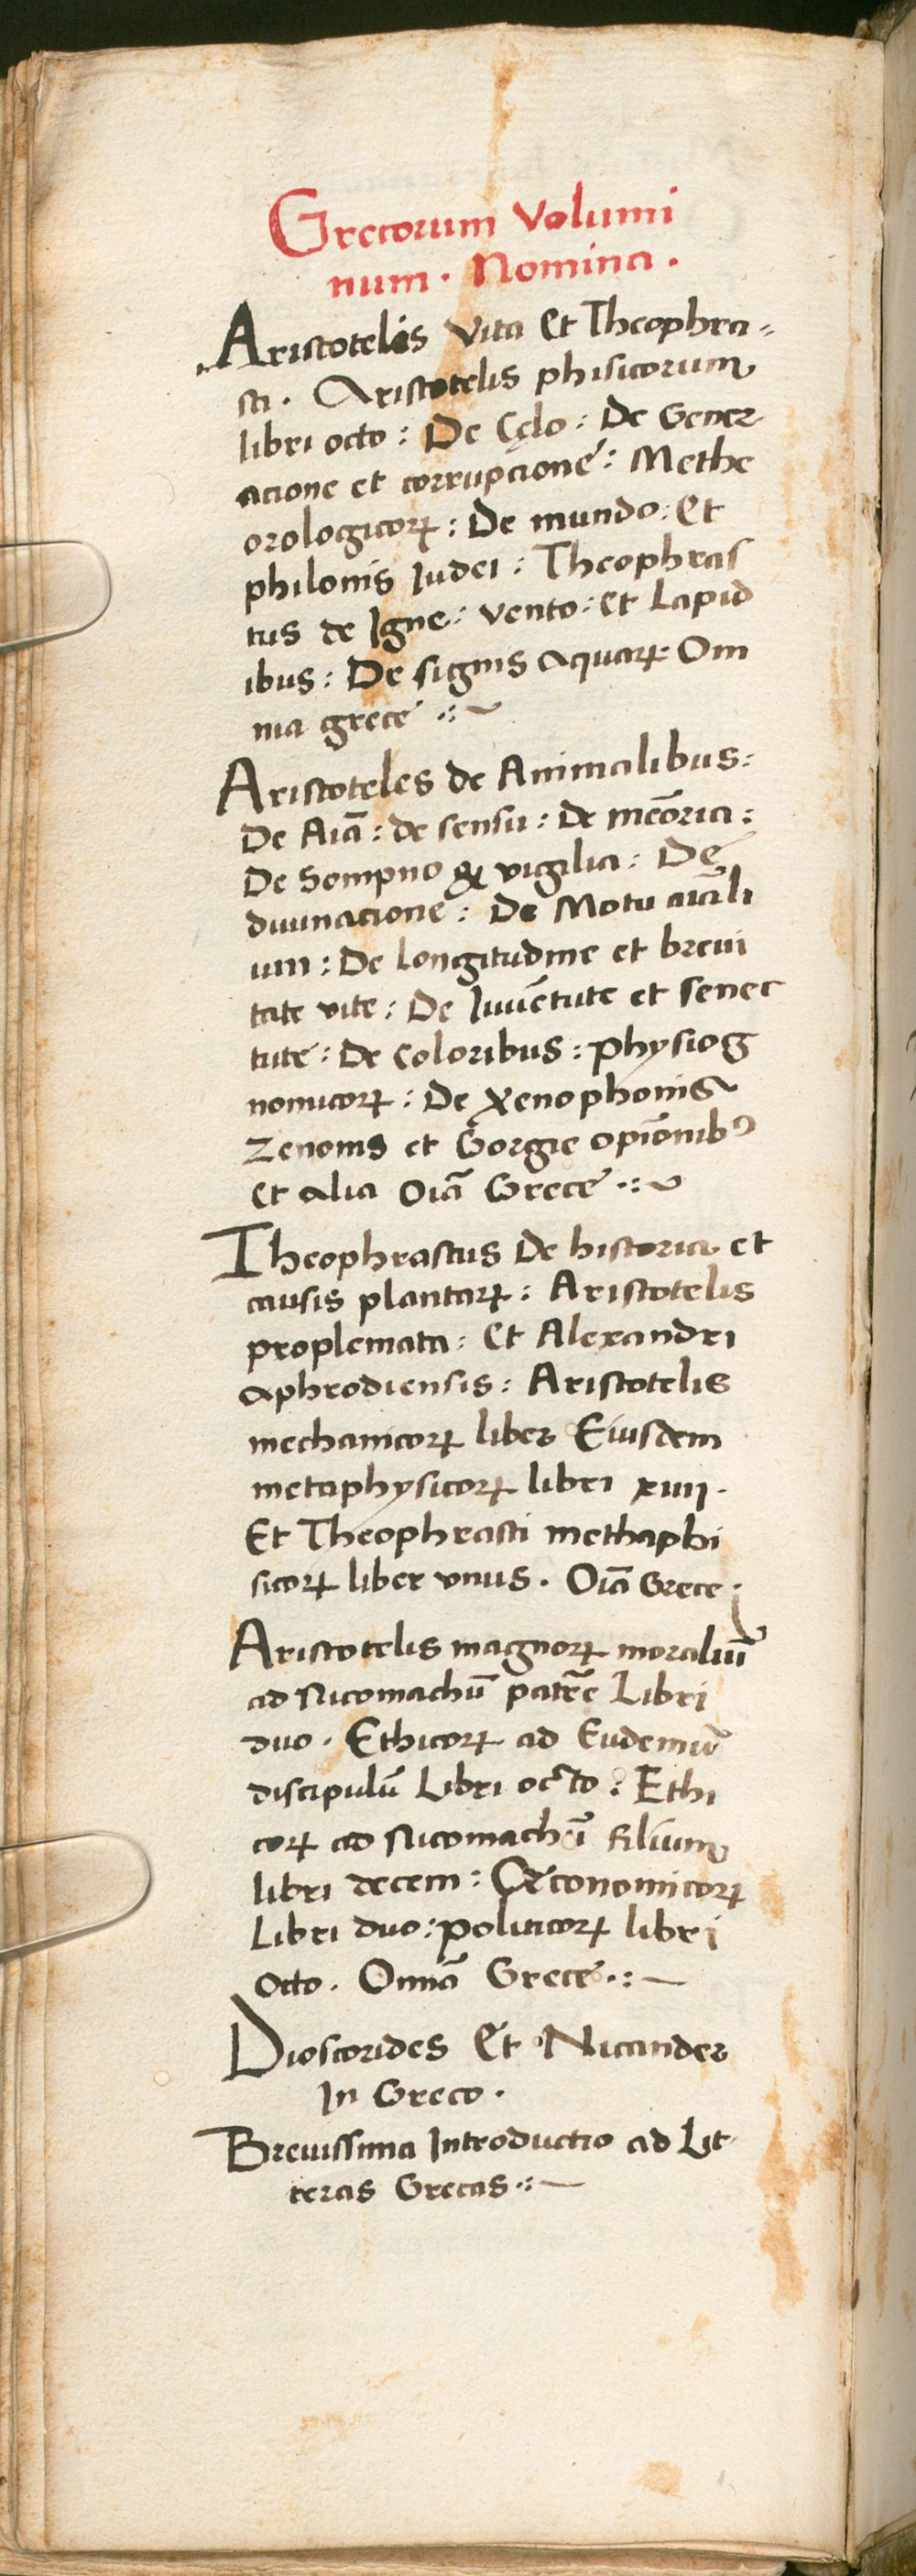 Grecorum Volumi
num. Nomina.
Aristotelis Vita Et Theophra=
sti. Aristotelis phisicorum
libri octo: De Cęlo: De Gener
acione et corrupcione: Methe
orologicoꝝ: De mundo: Et
philonis Iudei: Theophras
tus de Igne: vento: et Lapid
ibus: De signis aquaꝝ Om
nia grece
Aristoteles de Animalibus:
De Aiā: de sensu: De mēoria:
De Sompno & vigilia: De
diuinacione: De Motu aiāli
um: De longitudine et breui
tate vite: De Iuuētute et senec
tute: De Coloribus: physiog
nomicoꝝ: De Xenophonis
Zenonis et Gorgie opīonibꝰ
Et alia Oiā Grece
Theophrastus De historia et
causis plantaꝝ: Aristotelis
proplemata: Et Alexandri
aphrodiensis: Aristotelis
mechanicoꝝ liber Eiusdem
metaphysicoꝝ libri xiiij.
Et Theophrasti methaphi
sicoꝝ liber vnus. Oiā Grece.
Aristotelis magnoꝝ moraliū
ad Nicomachū patrē Libri
duo. Ethicoꝝ ad Eudemū
discipulū Libri octo: Ethi
coꝝ ad Nicomachū filium
libri decem: Œconomicoꝝ
Libri duo: politicoꝝ libri
octo. Omiā Grece.
Dioscorides Et Nicander
In Greco.
Breuissima Introductio ad Lit
teras Grecas